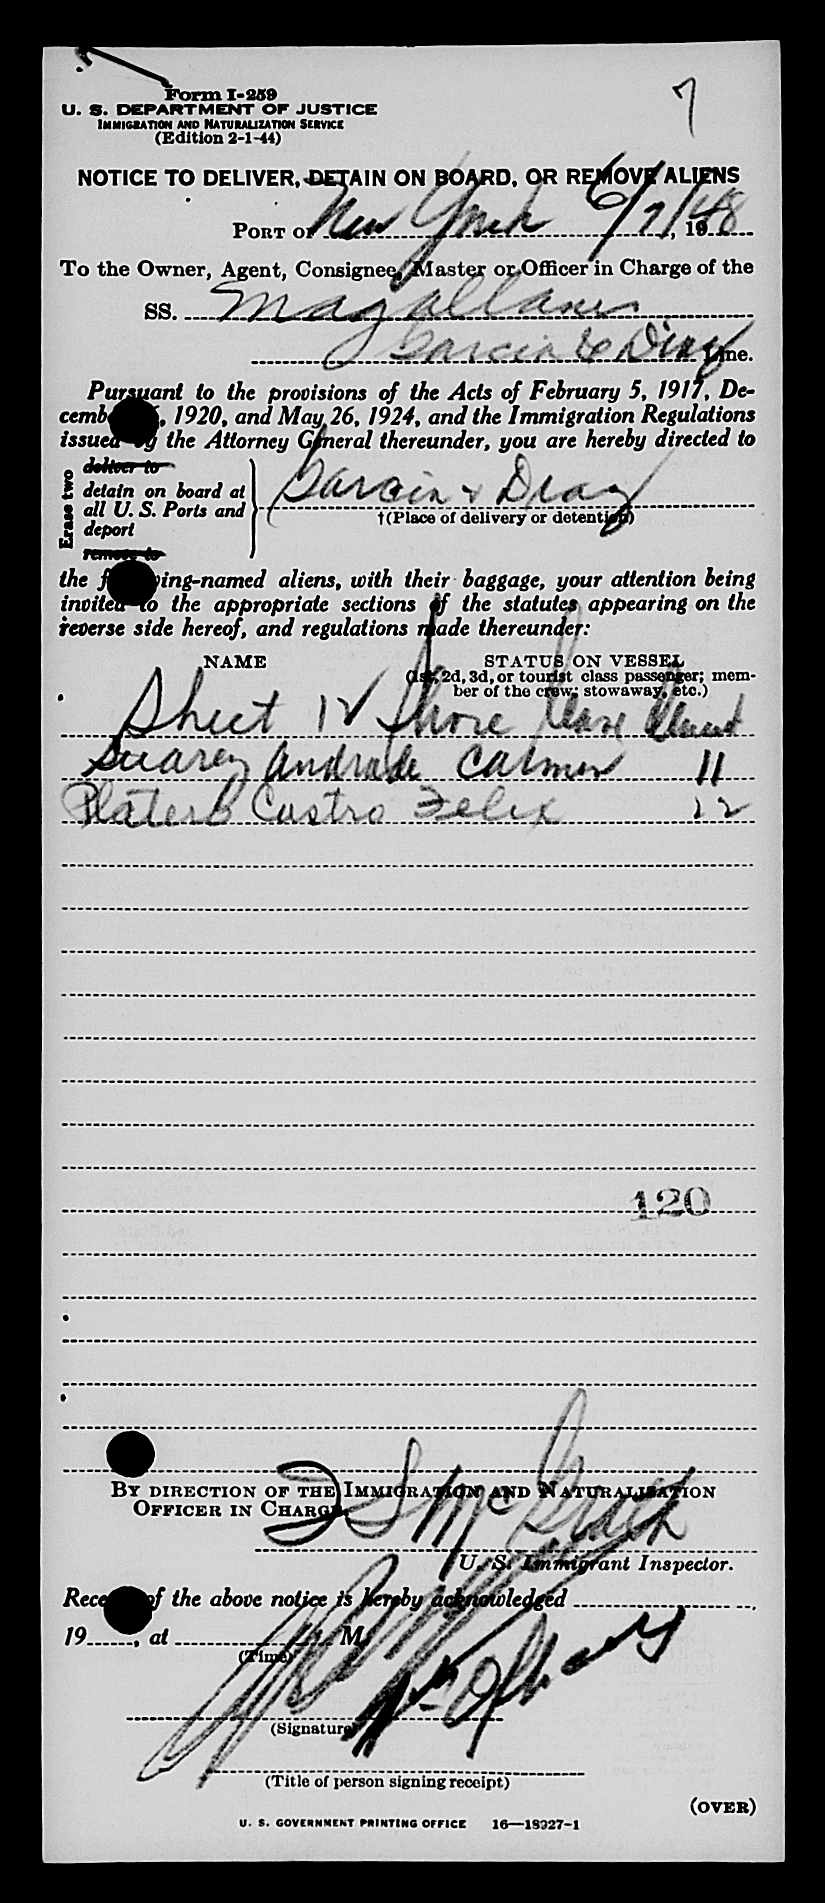 7
Form I-259
U. S. DEPARTMENT OF JUSTICE
IMMIGRATION AND NATURALIZATION SERVICE
(Edition 2-1-44)
NOTICE TO DELIVER, DETAIN ON BOARD, OR REMOVE ALIENS
PORT OF New York 6/7/48, 19
To the Owner, Agent, Consignee, Master or Officer in Charge of the
SS. Magallanes
Garcia & Diaz Line.
Pursuant to the provisions of the Acts of February 5, 1917, De-
cemb , 1920, and May 26, 1924, and the Immigration Regulations
issued by the Attorney General thereunder, you are hereby directed to
Erase two
deliver to
detain on board at
all U. S. Ports and
deport
remove to
Garcia & Diaz
†(Place of delivery or detention)
the f ing-named aliens, with their baggage, your attention being
invited to the appropriate sections of the statutes appearing on the
reverse side hereof, and regulations made thereunder:
NAME STATUS ON VESSEL
(1st, 2d, 3d, or tourist class passenger; mem-
ber of the crew; stowaway, etc.)
Sheet 12 Shore
Suarez Andrade Carmen 11
Platero Castro Felix 12
120
BY DIRECTION OF THE IMMIGRATION AND NATURALIZATION
OFFICER IN CHARGE.
McGrath
U. S. Immigrant Inspector.
Rece of the above notice is hereby acknowledged ,
19 , at M.
(Time)
(Signature)
(Title of person signing receipt)
(OVER)
U. S. GOVERNMENT PRINTING OFFICE 16—18927-1